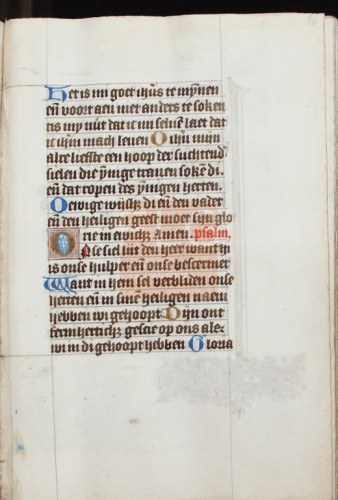 Het is mi goet ihūs te mȳnen
eñ voort aen niet anders te soken
tis mȳ nut dat ic mi selue laet dat
ic ihm mach leuen O ihū mijn
alre liefste een hoop der suchtend
sielen die ynige tranen sokē di.
eñ dat ropen des ynigen herten.
O ewige wijsh di eñ den vader
eñ den heiligen geest moet sijn glo
rie in ewich Amen. psalm.
Ose siel lijt den heer want hi
is onse hulper eñ onse beschermer
Want in hem sel verbliden onse
herten eñ in sinē heiligen naem
hebben wi gehoopt Dijn ont
fermherticheit geschie op ons als
wi in di gehoopt hebben Gloria